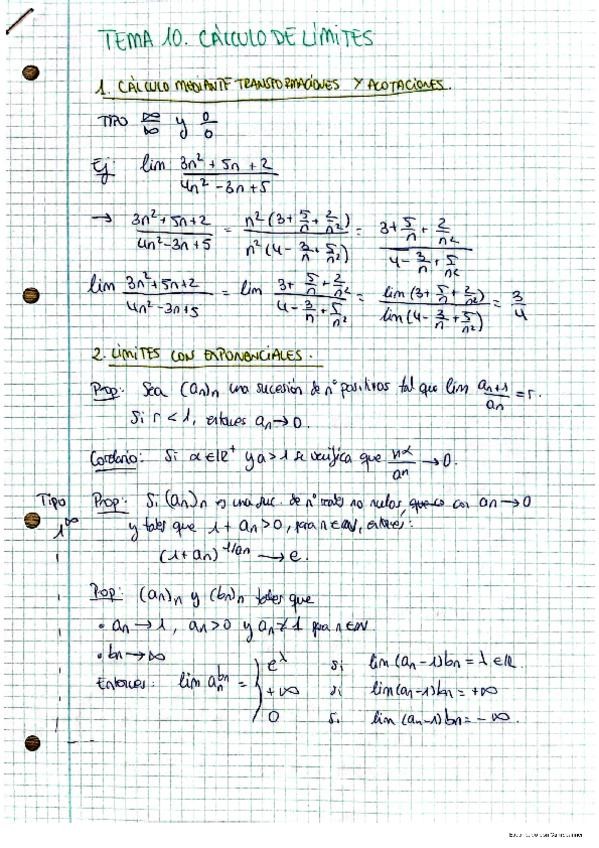 TEMA 10. CÁLCULO DE LÍMITES
1. CÁLCULO MEDIANTE TRANSFORMACIONES Y ACOTACIONES.
TIPO ∞/∞ y 0/0
Ej: lim (3n² + 5n + 2)/(4n² - 3n + 5)
→ (3n² + 5n + 2)/(4n² - 3n + 5) = n²(3 + 5/n + 2/n²)/n²(4 - 3/n + 5/n²) = (3 + 5/n + 2/n²)/(4 - 3/n + 5/n²)
lim (3n² + 5n + 2)/(4n² - 3n + 5) = lim (3 + 5/n + 2/n²)/(4 - 3/n + 5/n²) = lim(3 + 5/n + 2/n²)/lim(4 - 3/n + 5/n²) = 3/4
2. LÍMITES CON EXPONENCIALES.
Prop: Sea (an)n una sucesión de nº positivos tal que lim an+1/an = r.
Si r < 1, entonces an → 0.
Corolario: Si α ∈ ℝ⁺ y a > 1 se verifica que n^α/a^n → 0.
Tipo 1^∞
Prop: Si (an)n es una suc. de nº reales no nulos, con an → 0
y tales que 1 + an > 0, para n ∈ ℕ, entonces:
(1 + an)^1/an → e.
Prop: (an)n y (bn)n tales que
• an → 1, an > 0 y an ≠ 1 para n ∈ ℕ.
• bn → ∞
Entonces: lim an^bn = { e^λ si lim (an - 1)bn = λ ∈ ℝ.
+∞ si lim (an - 1)bn = +∞
0 si lim (an - 1)bn = -∞.